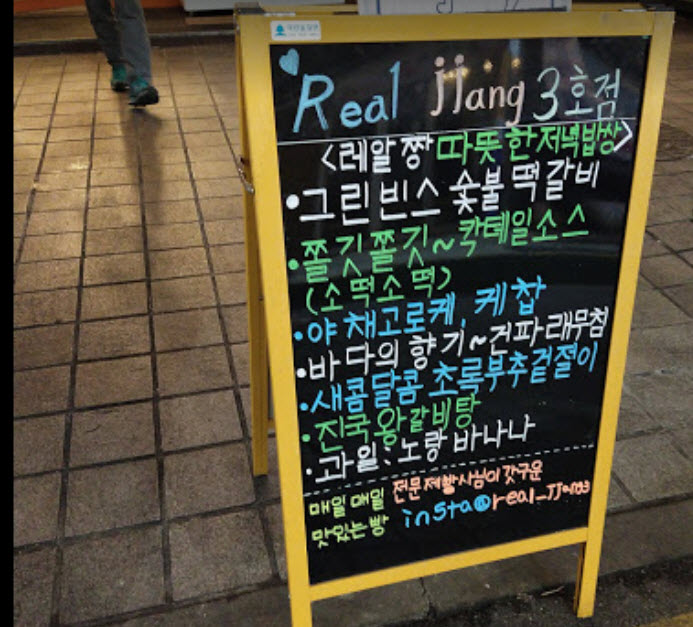 Real jjang 3호점
<레알 짱 따뜻한 저녁밥상>
•그린빈스 숯불떡갈비
•쫄깃쫄깃~칵테일소스
(소떡소떡)
•야채고로케, 케찹
•바다의 향기~건파래무침
•새콤달콤 초록부추겉절이
•진국왕갈비탕
•과일:노랑바나나
매일매일 전문제빵사님이 갓구운
맛있는빵 insta@real_jjang3